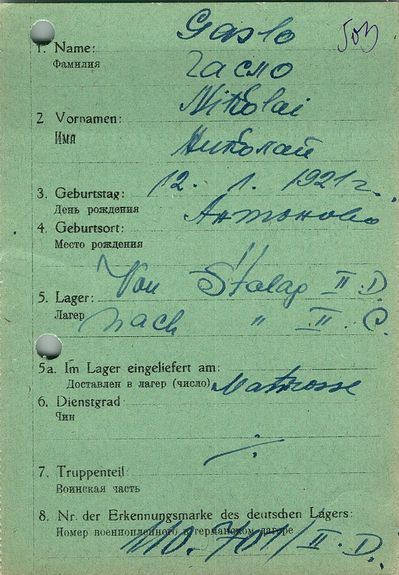 Gaslo
1. Name:
Фамилия
гасло
Nikolai
2 Vornamen:
Имя
Николай
3. Geburtstag: 12. 1. 1921 г.
День рождения
Антоново
4. Geburtsort:
Место рождения
Von Stalag II. D.
5. Lager:
Лагер
nach " II. C.
5a. Im Lager eingeliefert am:
Доставлен в лагер (число)
Matrosse
6. Dienstgrad:
Чин
7. Truppenteil:
Воинская часть
8. Nr. der Erkennungsmarke des deutschen Lagers:
Номер военнопленного в германском лагере
110. 701/II. D.